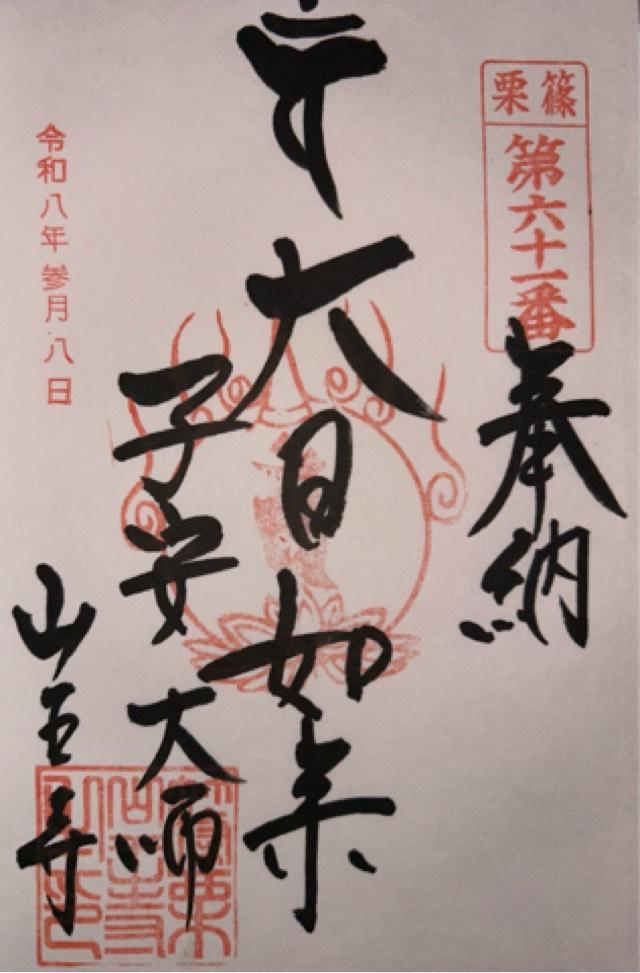 篠栗
第六十一番
奉納
大日如来
子安大師
山王寺
令和八年参月八日